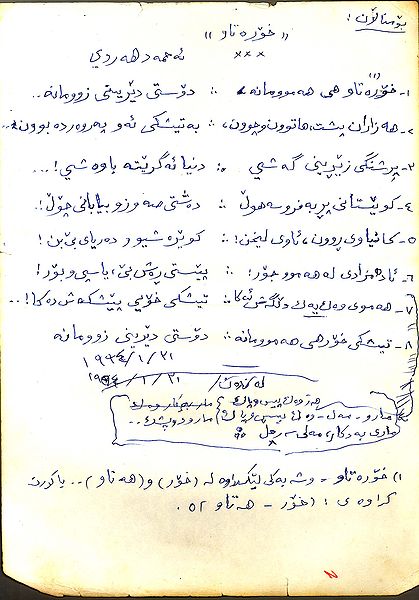 بۆ مناڵان :
(( خۆرە تاو ))
× × ×
ئەحمەد هەردی
١- خۆرە تاو (١) هی هەموومانە، :: دۆستی دێرینی زوومانە..
٢- هەزاران پشت، هاتوون و چوون، :: بە تیشکی ئەو پەروەردە بوون..
٣- پرشنگی زێڕینی گەشی :: دنیا ئەگرێتە باوەشی!...
٤- کوێستانی پڕ بەفر و سەهۆڵ :: دەشتی صەوز و بیابانی چۆڵ!..
٥- کانیاوی ڕوون، ئاوی لیخن! :: کوێرە شیو و دەریای بێ بن!
٦- ئادەمزادی لە هەموو جۆر! :: پێستی ڕەش بێ، یا سپی و بۆر!
٧- هەمووی وەک یەک دڵگەش ئەکا :: تیشکی خۆیی پێشکەش دەکا!..
٨- تیشکی خۆر هی هەموومانە :: دۆستی دێرینی زوومانە
١٩٩٤/١/٢١
لە لەندەن/ ١٩٩٤/١/٢١
مار و - مەل -
(١) خۆرە تاو - وشەیەکی لێکدراوە لە (خۆر) و (هەتاو).. یا کورت
کراوەی : (خۆر - هەتاو) ە.